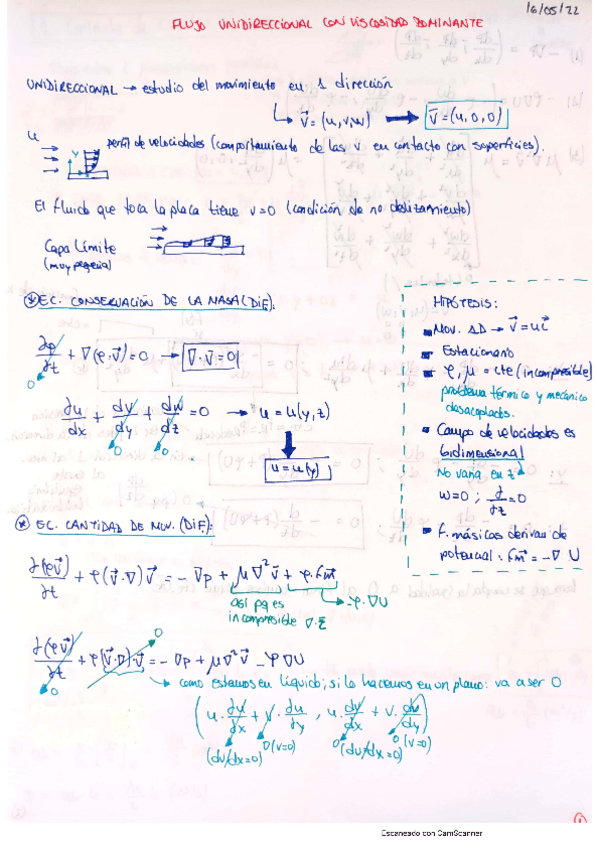 16/05/22
FLUJO UNIDIRECCIONAL CON VISCOSIDAD DOMINANTE
UNIDIRECCIONAL → estudio del movimiento en 1 dirección
↳ v⃗ = (u, v, w) → v⃗ = (u, 0, 0)
u
Y
perfil de velocidades (comportamiento de las v en contacto con superficies).
El fluido que toca la placa tiene v=0 (condición de no deslizamiento)
Capa Límite
(muy pequeña)
* EC. CONSERVACIÓN DE LA MASA (DIF):
∂ρ/∂t + ∇(ρ·v⃗) = 0 → ∇·v⃗ = 0
0
du/dx + dv/dy + dw/dz = 0 → u = u(y,z)
0 0
u = u(y)
HIPÓTESIS:
Mov. 1D → v⃗ = u i⃗
Estacionario
ρ, μ = cte (incompresible)
problema térmico y mecánico
desacoplados.
Campo de velocidades es
bidimensional
No varía en z
w=0 ; d/dz = 0
F. másicas derivan de
potencial: fm = -∇U
* EC. CANTIDAD DE MOV. (DIF):
∂(ρv⃗)/∂t + ρ(v⃗·∇)v⃗ = -∇p + μ∇²v⃗ + ρ·fm
así pq es
incompresible ∇·
-ρ·∇U
0
∂(ρv⃗)/∂t + ρ(v⃗·∇)·v⃗ = -∇p + μ∇²v⃗ - ρ∇U
0
→ como estamos en líquido; si lo hacemos en un plano: va a ser 0
(u·du/dx + v·du/dy , u·dv/dx + v·dv/dy)
0 (du/dx=0) 0 (v=0) 0 (dv/dx=0) 0 (v=0)
1
Escaneado con CamScanner